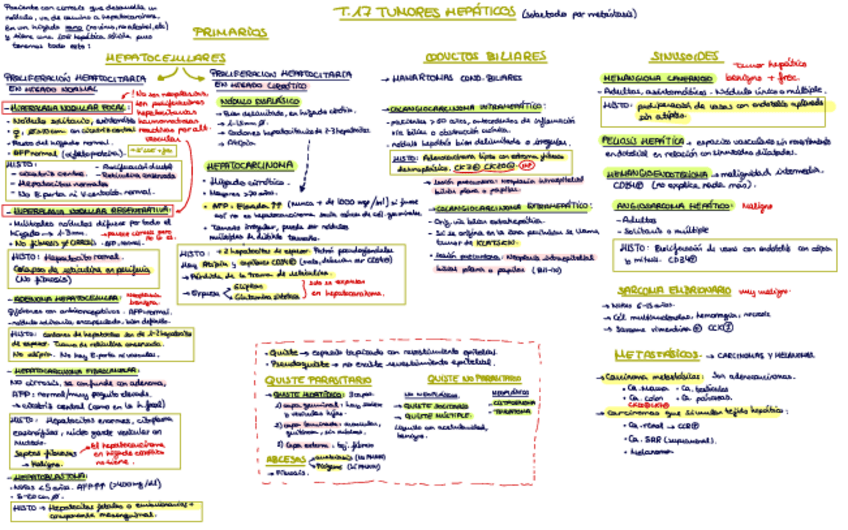 Paciente con cirrosis que desarrolla un
nódulo, va de camino a hepatocarcinoma.
En un hígado sano
y tiene una
tenemos todo esto:
T.17 TUMORES HEPÁTICOS (sobretodo por metástasis)
PRIMARIOS
HEPATOCELULARES
PROLIFERACIÓN HEPATOCITARIA
EN HÍGADO NORMAL
- HIPERPLASIA NODULAR FOCAL:
- Nódulo solitario, asintomático
- Resto del hígado normal.
- AFP normal (alfafetoproteína).
! No son neoplásicas,
son proliferaciones
hepatocitarias
reactivas por alt.
vasculares
HISTO:
- Cicatriz central
- Hepatocitos normales
- No E. porta ni V. central normal.
- HIPERPLASIA NODULAR REGENERATIVA:
- Múltiples nódulos difusos por todo el
hígado
- No fibrosis ≠ CIRROSIS
HISTO: Hepatocito normal.
Colapso de reticulina en periferia
(No fibrosis)
- ADENOMA HEPATOCELULAR: neoplasia
benigna.
♀ jóvenes con anticonceptivos. AFP normal.
- nódulo solitario encapsulado, bien definido.
HISTO: cordones de hepatocitos son de 1-2 hepatocitos
de espesor. Trama de reticulina conservada.
No atipia. No hay E. porta ni vasculares.
- HEPATOCARCINOMA FIBROLAMELAR:
No cirrosis, se confunde con adenoma,
AFP: normal/muy poquito elevada.
- cicatriz central (como en la h. focal)
HISTO: Hepatocitos enormes, citoplasma
eosinófilo, núcleo grande vesicular con
nucleolo.
Septos fibrosos
→ Maligno.
El hepatocarcinoma
en hígado cirrótico
no tiene.
- HEPATOBLASTOMA:
- Niños <5 años. AFP↑↑
HISTO → Hepatocitos fetales o embrionarios +
componente mesenquimal.
PROLIFERACIÓN HEPATOCITARIA
EN HÍGADO CIRRÓTICO
NÓDULO DISPLÁSICO
- Bien delimitado, en hígado cirrótico.
- Cordones hepatocitarios de 1-3 hepatocitos
- Atipia
HEPATOCARCINOMA
- Hígado cirrótico.
- Mayores >70 años.
- AFP: Elevada ↑↑
- Tamaño irregular, puede ser nódulos
múltiples de distinto tamaño.
HISTO: +2 hepatocitos de espesor. Patrón pseudoglandular
Hay Atipia y capilares CD34⊕
→ Pérdida de la trama de reticulina.
→ Expresa
Glipican
Glutamina sintetasa
Solo se expresa
en hepatocarcinoma.
CONDUCTOS BILIARES
→ HAMARTOMAS COND. BILIARES
- COLANGIOCARCINOMA INTRAHEPÁTICO:
- pacientes > 60 años, antecedentes de inflamación
vía biliar u obstrucción crónica.
- nódulo hepático bien delimitado o irregular.
HISTO: Adenocarcinoma típico con estroma fibroso
desmoplásico. CK7⊕ CK20⊖
→ Lesión precursora: neoplasia intraepitelial
biliar plana o papilar.
- COLANGIOCARCINOMA EXTRAHEPÁTICO:
- Orig. vía biliar extrahepática.
- Si se origina en la zona perihiliar se llama
tumor de KLATSKIN.
- Lesión precursora: Neoplasia intraepitelial
biliar plana o papilar (BilIN)
SINUSOIDES
HEMANGIOMA CAVERNOSO
tumor hepático
benigno + frec.
- Adultos, asintomáticos. Nódulo único o múltiple.
HISTO: proliferación de vasos con endotelio aplanado
sin atipia.
PELIOSIS HEPÁTICA → espacios vasculares sin revestimiento
endotelial en relación con sinusoides dilatados.
HEMANGIOENDOTELIOMA → malignidad intermedia.
CD34⊕ (no explica nada más).
ANGIOSARCOMA HEPÁTICO: Maligno
- Adultos
- Solitario o múltiple
HISTO: Proliferación de vasos con endotelio con atipia
y mitosis. CD34⊕
SARCOMA EMBRIONARIO muy maligno.
→ Niños 6-15 años.
→ Cél. multinucleadas, hemorragia, necrosis
→ Sarcoma vimentina ⊕
METASTÁSICOS → CARCINOMAS Y MELANOMA
→ Carcinoma metastásicos: Son adenocarcinomas.
- Ca. Mama
- Ca. colon
- Ca. páncreas.
→ Carcinomas que simulan tejido hepático:
- Ca. renal → CD10⊕
- Ca. SRR (suprarrenal).
- Melanoma
- Quiste → espacio tapizado con revestimiento epitelial.
- Pseudoquiste → no existe revestimiento epitelial.
QUISTE PARASITARIO
- QUISTE HIDATÍDICO: 3 capas:
1) capa germinal:
y vesículas hijas.
2) capa laminada: acelular,
3) capa externa: tej. fibroso
ABCESOS
→ Fibrosis.
QUISTE NO PARASITARIO
NO NEOPLÁSICOS
→ QUISTE SOLITARIO
→ QUISTE MÚLTIPLE.
Líquido en su interior,
benigno.
NEOPLÁSICOS
- CISTOADENOMA
- TERATOMA